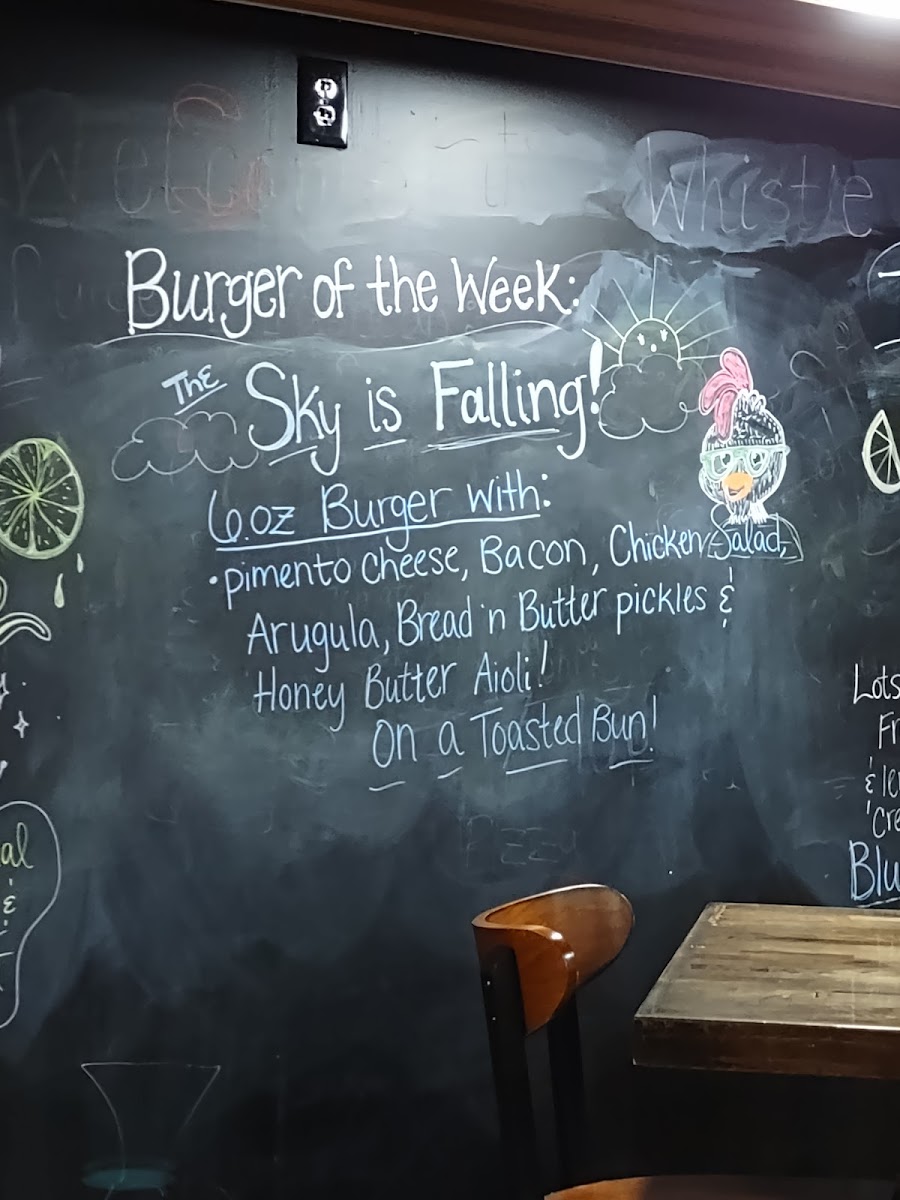 Welcome
Whistle
Burger of the Week:
The Sky is Falling!
6oz Burger With:
•pimento cheese, Bacon, Chicken Salad,
Arugula, Bread 'n Butter pickles &
Honey Butter Aioli!
On a Toasted Bun!
Lots
Fr
& le
Cre
Blu
al
&